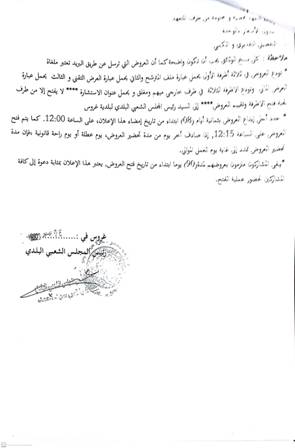 ملاحظة : كل نسخ الوثائق يجب أن تكون واضحة كما أن العروض التي ترسل عن طريق البريد تعتبر ملغاة
*تودع العروض في ثلاثة أظرفة الأول يحمل عبارة ملف الترشح والثاني يحمل عبارة العرض التقني و الثالث يحمل عبارة
العرض المالي وتودع الأظرفة الثلاثة في ظرف خارجي مبهم ومغلق و يحمل عنوان الاستشارة **** لا يفتح إلا من طرف
لجنة فتح الأظرفة وتقييم العروض **** إلى السيد رئيس المجلس الشعبي البلدي لبلدية غروس
* حدد أجل إيداع العروض بثمانية أيام (08) ابتداء من تاريخ إمضاء هذا الإعلان، على الساعة 12:00. كما يتم فتح
العروض على الساعة 12:15, إذا صادف آخر يوم من مدة تحضير العروض، يوم عطلة أو يوم راحة قانونية ،فإن مدة
تحضير العروض تمدد إلى غاية يوم العمل الموالي.
*يبقى المشاركون ملزمون بعروضهم لمدة (90) يوما ابتداء من تاريخ فتح العروض. يعتبر هذا الإعلان بمثابة دعوة إلى كافة
المشاركين لحضور عملية الفتح.
غروس في :
رئيس المجلس الشعبي البلدي